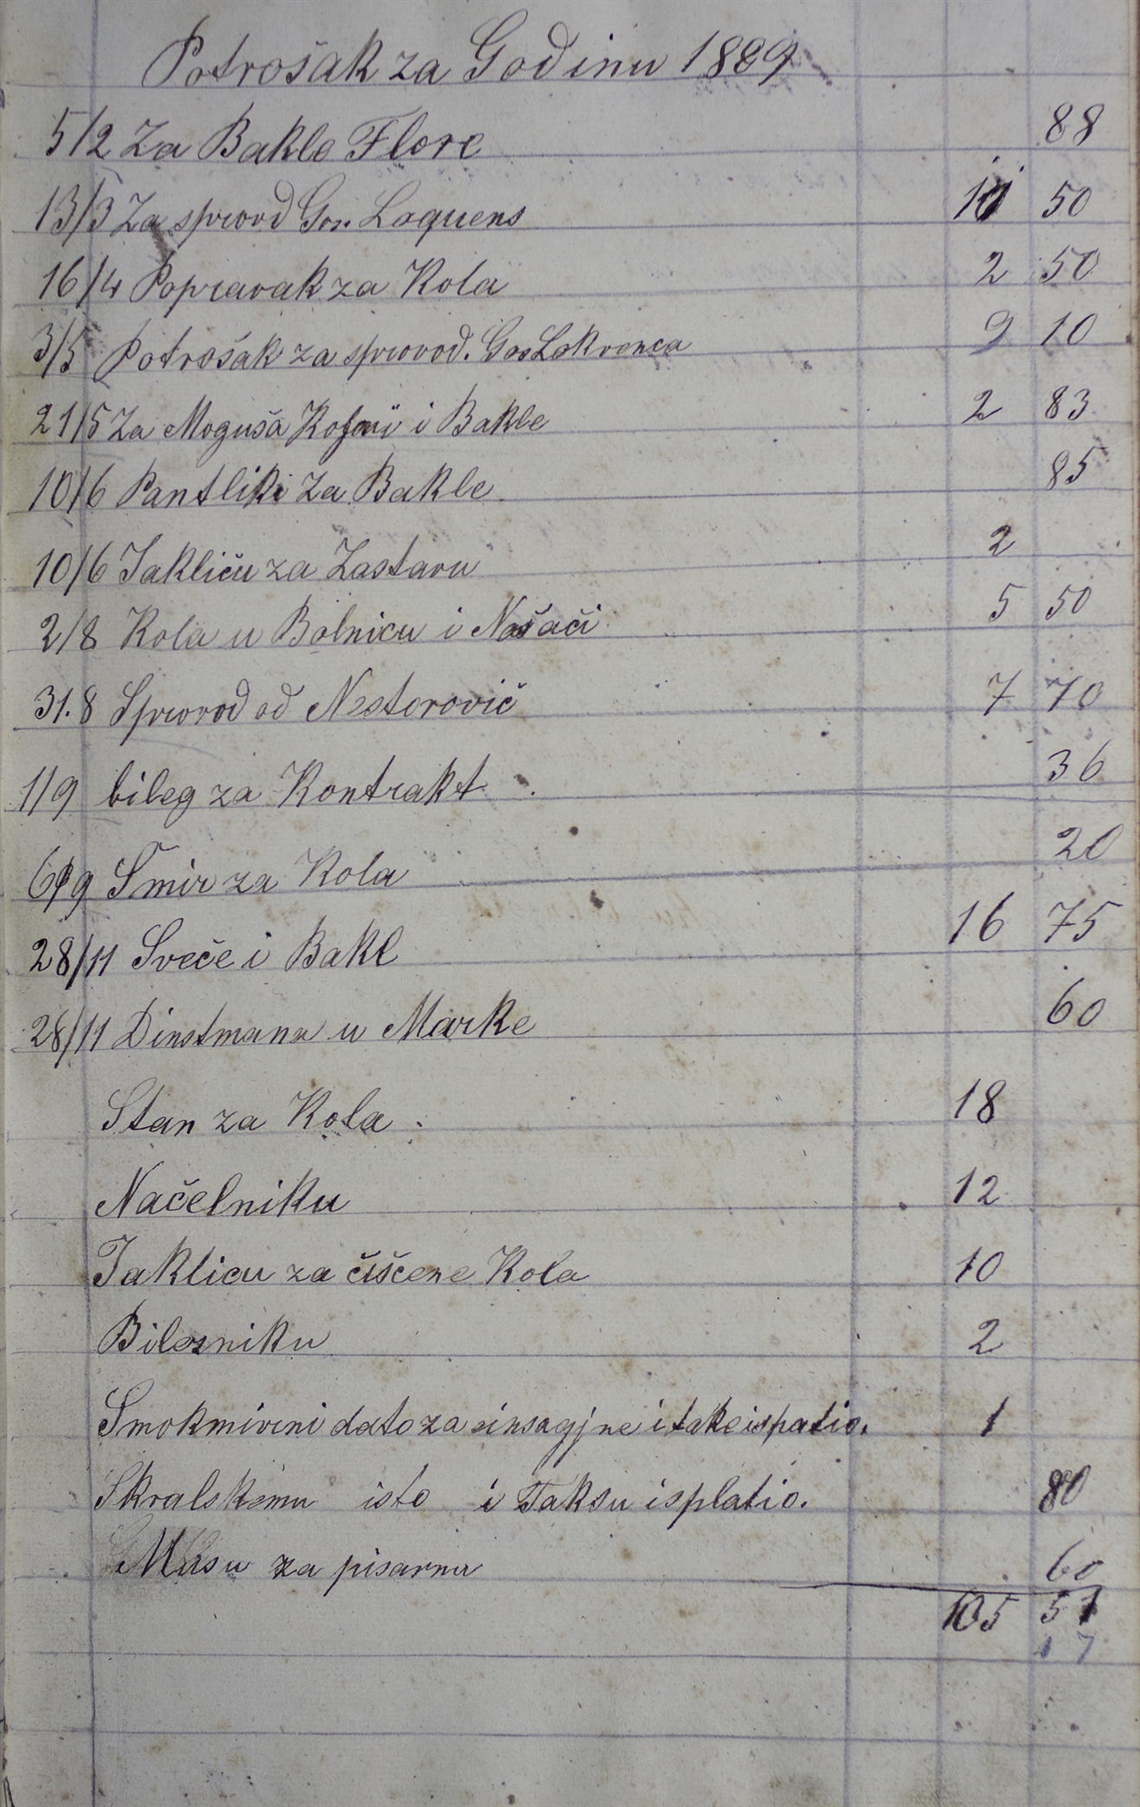 Potrošak za Godinu 1889
5/2 Za Bakle Flore 88
13/3 Za sprovod Gos. Loquens 10 50
16/4 Popravak za Kola 2 50
3/5 Potrošak za sprovod. Gos Lokvenca 9 10
21/5 Za Moguša i Bakle 2 83
10/6 Pantliki Za Bakle 85
10/6 Jakliču za Zastavu 2
2/8 Kola u Bolnicu i Nosači 5 50
31.8 Sprovod od Nestorovič 7 70
1/9 bileg za Kontrakt 36
6/9 Šmir za Kola 20
28/11 Sveče i Bakl 16 75
28/11 Dinstmana u Marke 60
Stan za Kola 18
Načelniku 12
Jaklicu za čiščene Kola 10
Bilezniku 2
dato za i take ispatio. 1
Skralskemu isto i Taksu isplatio. 80
za pisarnu 60
105 57
17